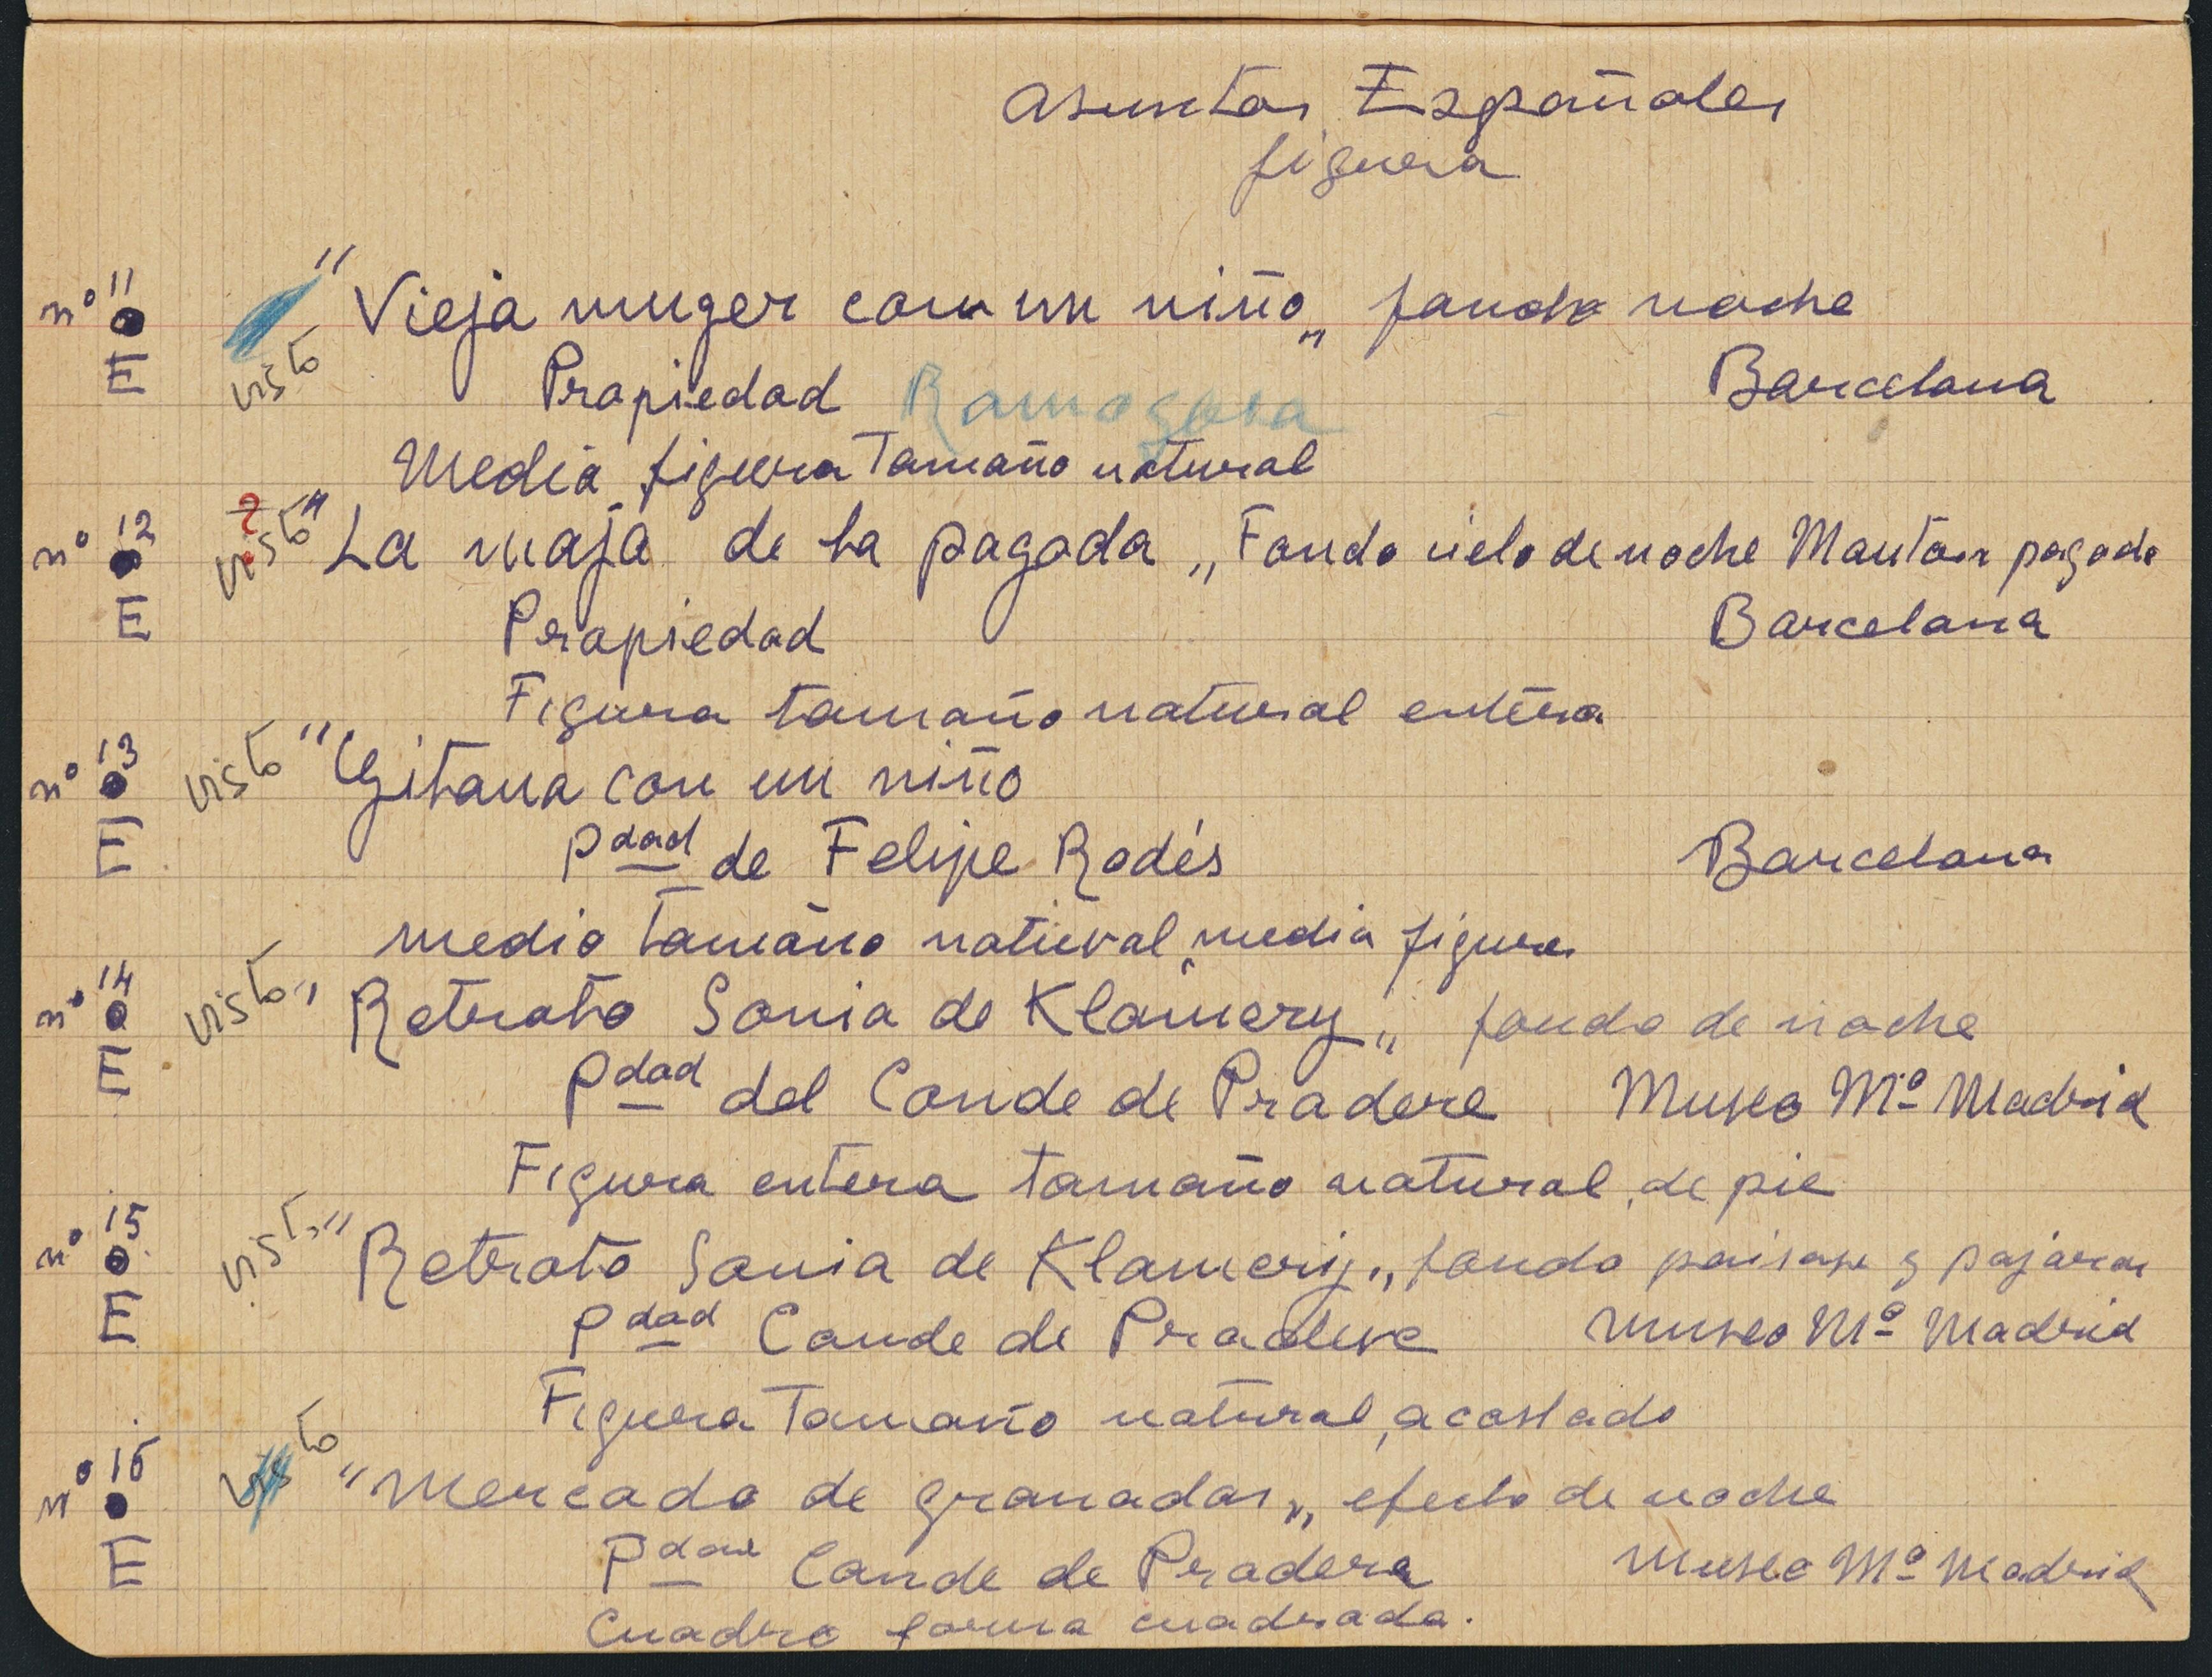 Asuntos Españoles
figura
nº 11 E visto "Vieja muger con un niño„ fondo noche
Propiedad Ramogosa Barcelona
Media figura Tamaño natural
nº 12 E ? visto "La maja de la pagoda„ Fondo cielo de noche Manton pagoda
Propiedad Barcelona
Figura tamaño natural entera
nº 13 E visto "Gitana con un niño
Pdad de Felipe Rodés Barcelona
medio tamaño natural, media figura
nº 14 E visto "Retrato Sonia de Klamery„ fondo de noche
Pdad del Conde de Pradere Museo Mº Madrid
Figura entera tamaño natural, de pie
nº 15 E visto "Retrato Sonia de Klamery„ fondo paisaje y pajaros
Pdad Conde de Pradere Museo Mº Madrid
Figura Tamaño natural, acostado
nº 16 E visto "Mercado de granadas„ efecto de noche
Pdad Conde de Pradera Museo Mº Madrid
Cuadro forma cuadrada.